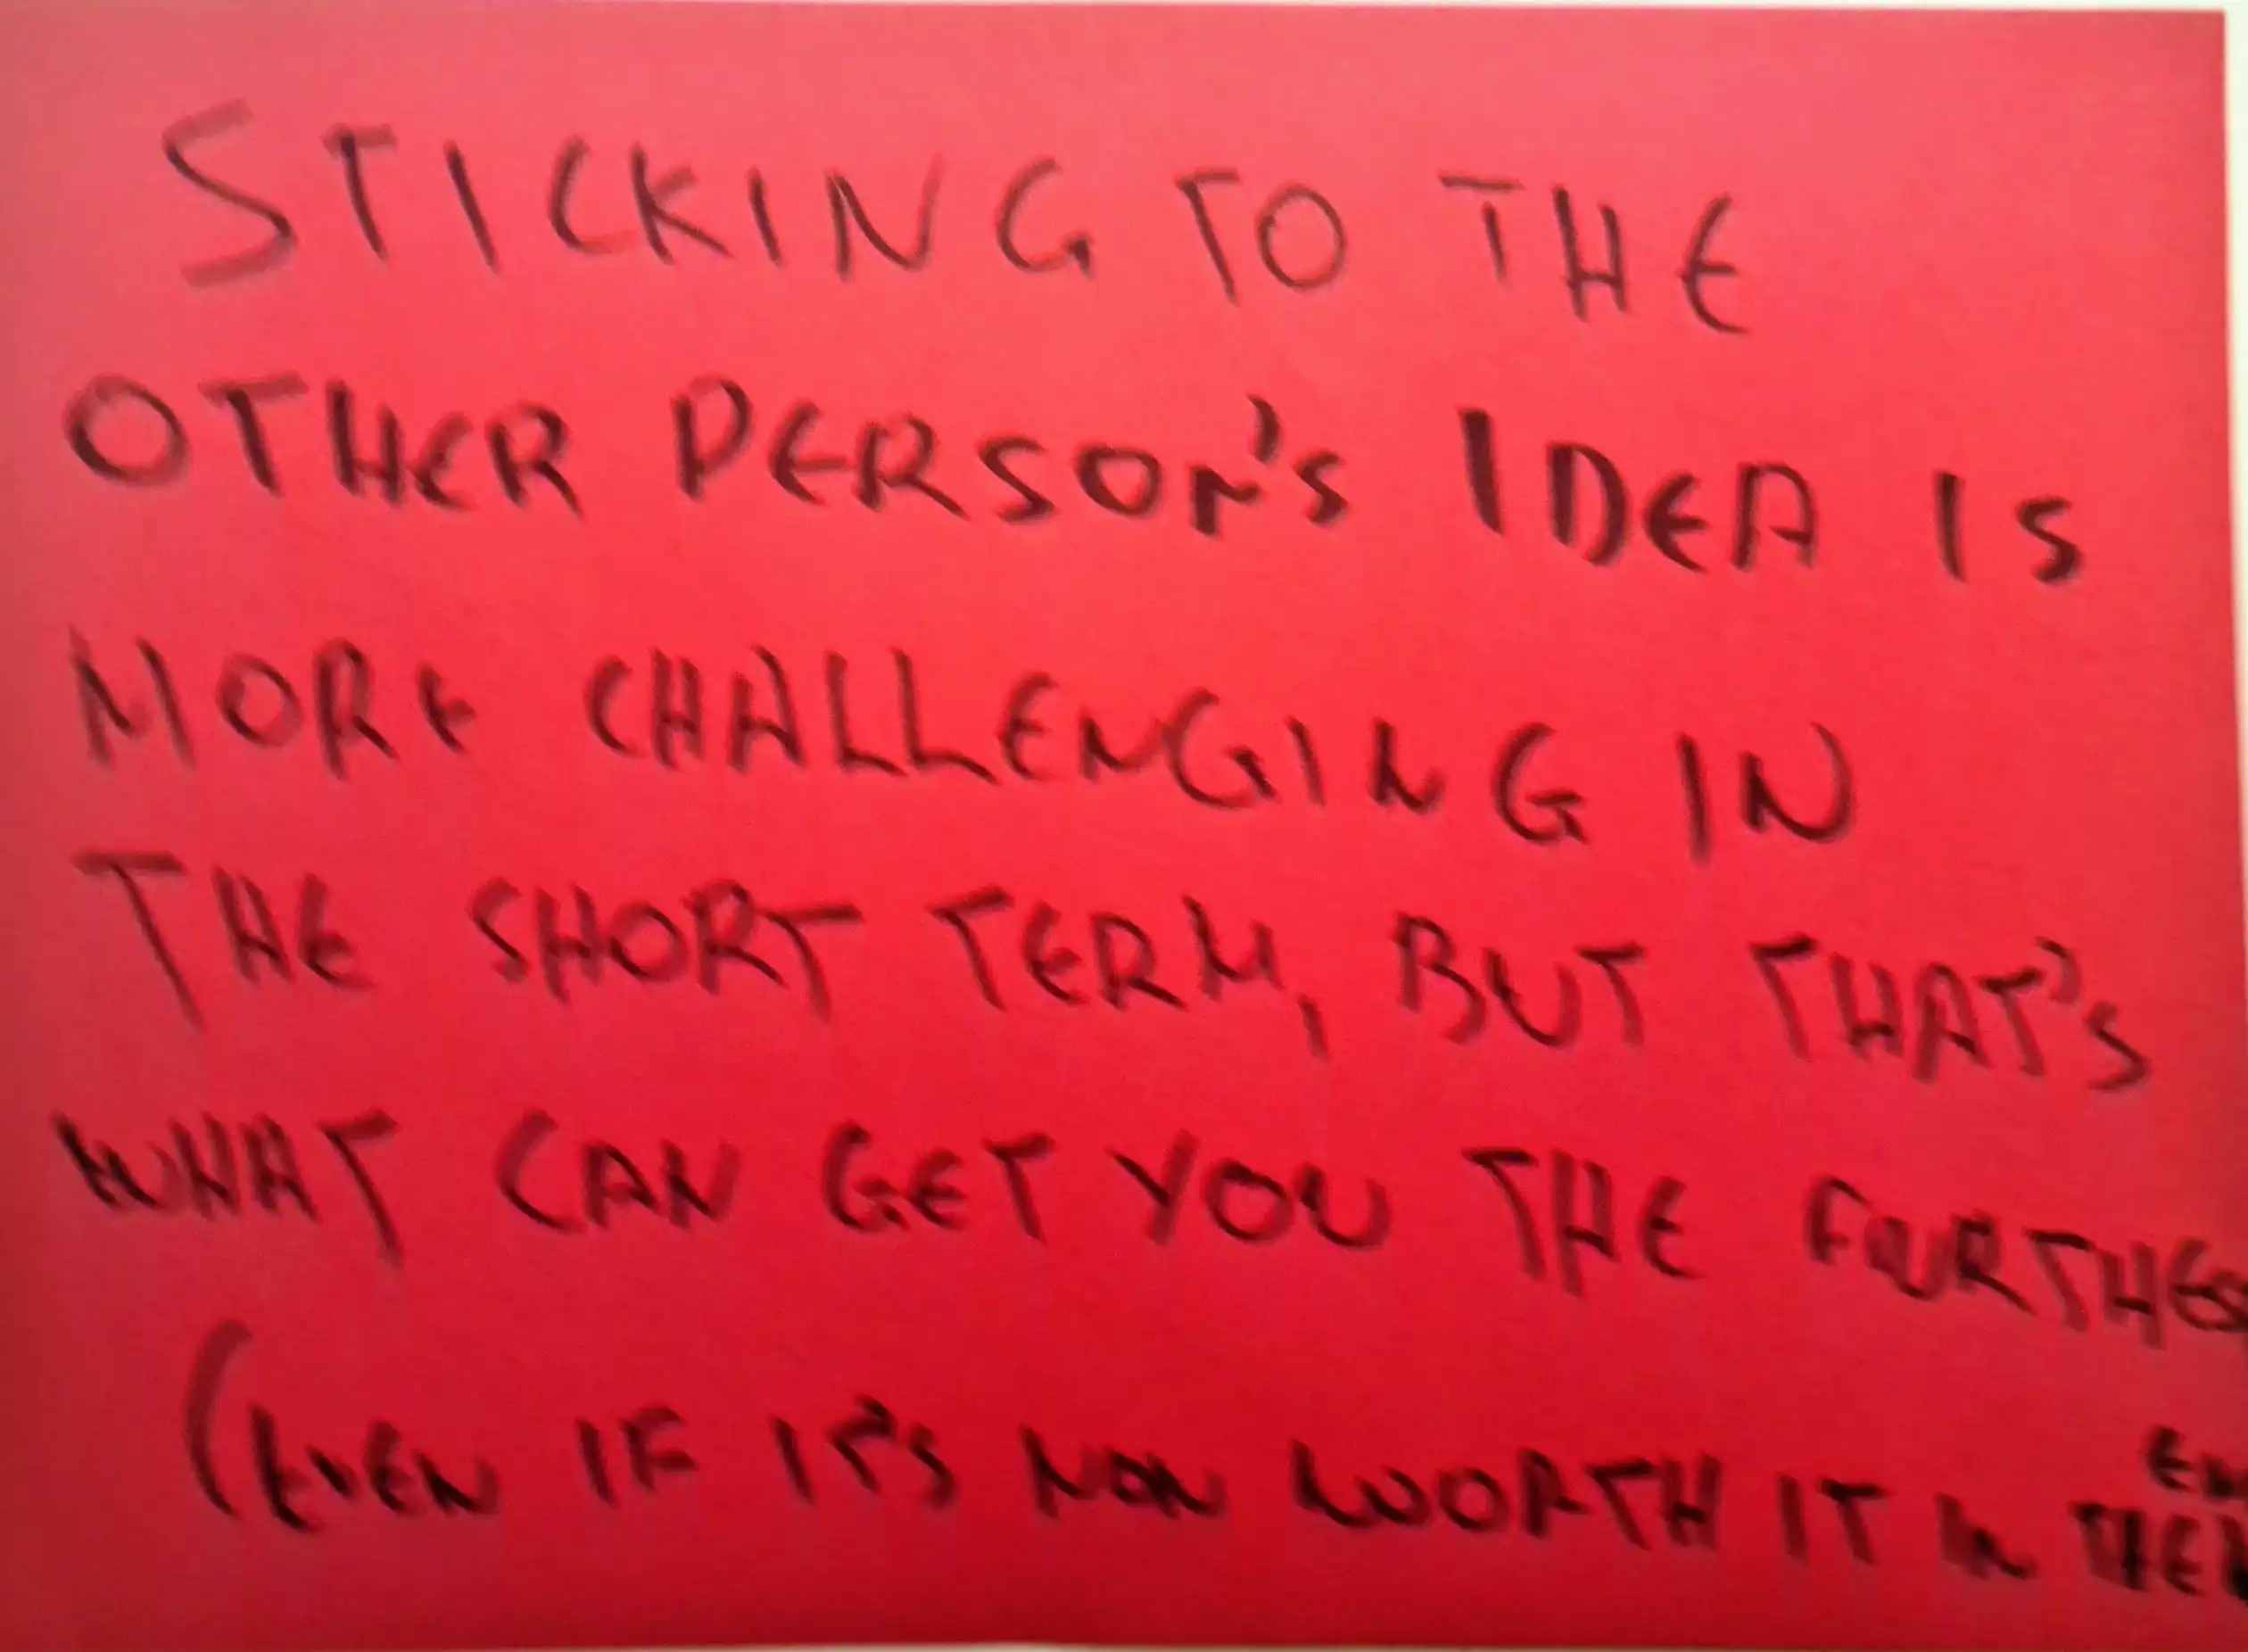 STICKING TO THE
OTHER PERSON'S IDEA IS
MORE CHALLENGING IN
THE SHORT TERM, BUT THAT'S
WHAT CAN GET YOU THE
(EVEN IF IT'S WORTH IT IN